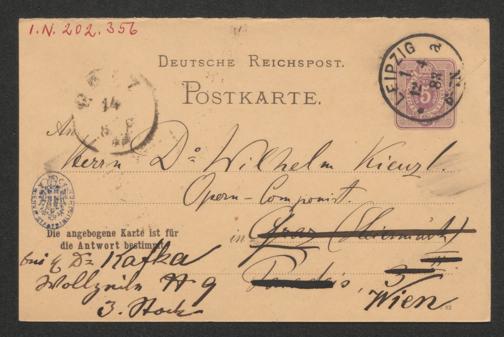 I.N. 202.356
DEUTSCHE REICHSPOST.
POSTKARTE.
LEIPZIG
1
4
12
5
14
An
Herrn Dr Wilhelm Kienzl.
Opern-Componist.
Die angebogene Karte ist für
die Antwort bestimmt.
in Graz (Steiermark)
Dr Kafka
Wollzeile No 9
3. Stock
Paradeis, 3
Wien